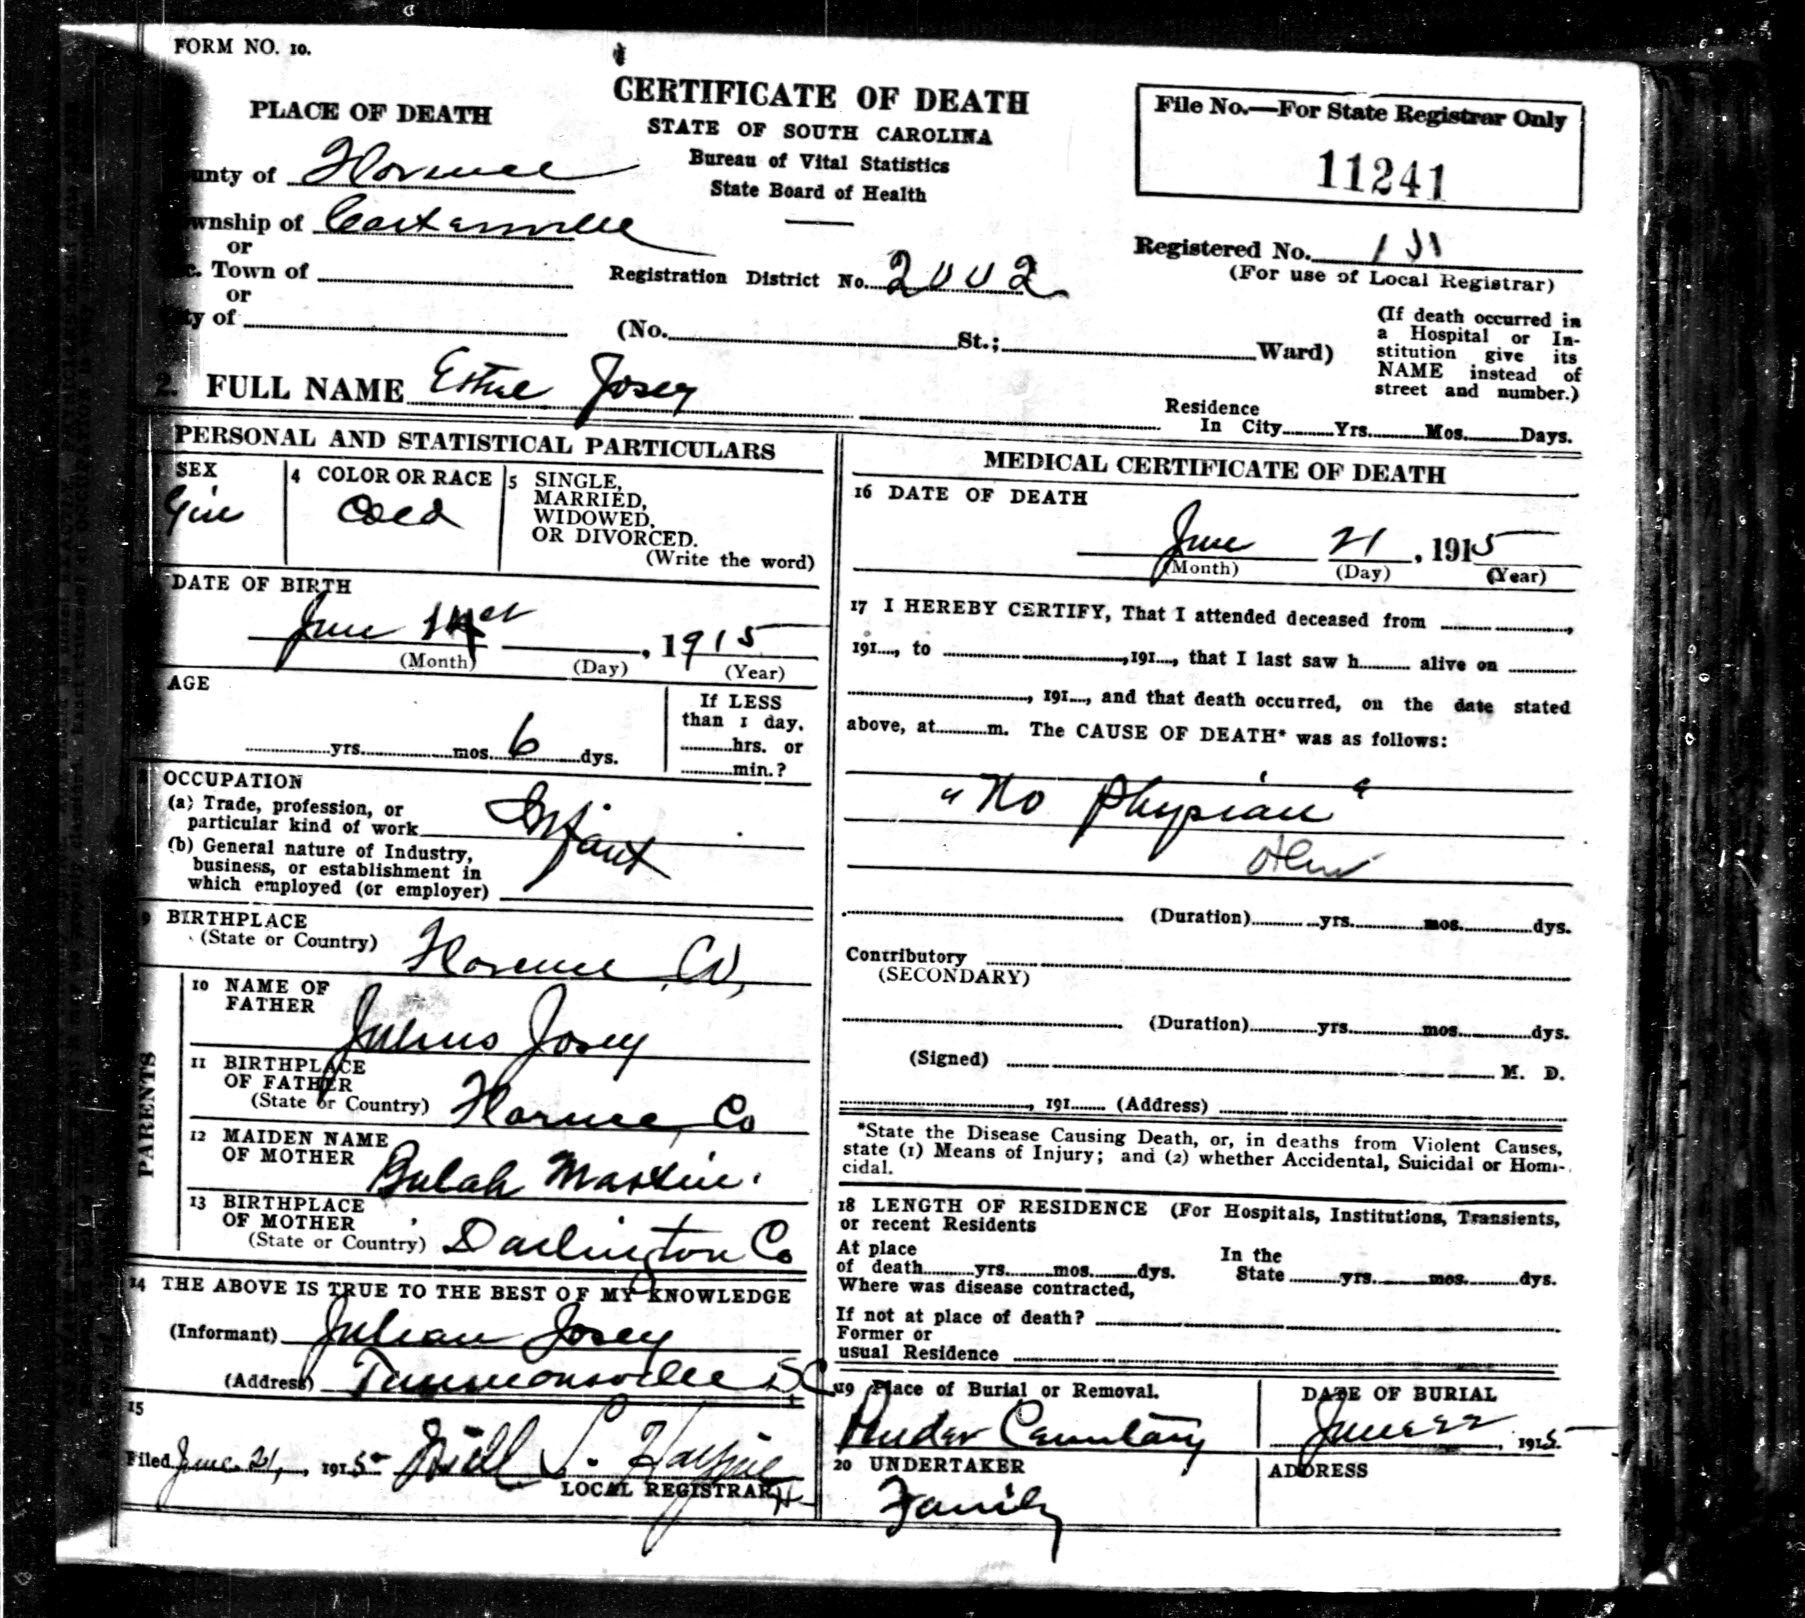 FORM NO. 10.
PLACE OF DEATH
unty of Florence
wnship of Cartersville
or
c. Town of
or
ty of
CERTIFICATE OF DEATH
STATE OF SOUTH CAROLINA
Bureau of Vital Statistics
State Board of Health
Registration District No. 2002
(No. St.; Ward)
File No.—For State Registrar Only
11241
Registered No.
(For use of Local Registrar)
(If death occurred in
a Hospital or In-
stitution give its
NAME instead of
street and number.)
2. FULL NAME Josey
Residence
In City Yrs. Mos. Days.
PERSONAL AND STATISTICAL PARTICULARS
SEX
Girl
4 COLOR OR RACE
Cold
5 SINGLE,
MARRIED,
WIDOWED,
OR DIVORCED.
(Write the word)
DATE OF BIRTH
June , 1915
(Month) (Day) (Year)
AGE
yrs. mos. 6 dys.
If LESS
than 1 day.
hrs. or
min.?
OCCUPATION
(a) Trade, profession, or
particular kind of work Infant
(b) General nature of Industry,
business, or establishment in
which employed (or employer)
9 BIRTHPLACE
(State or Country) Florence Co,
PARENTS
10 NAME OF
FATHER
Julius Josey
11 BIRTHPLACE
OF FATHER
(State or Country) Florence, Co
12 MAIDEN NAME
OF MOTHER Bulah Martin.
13 BIRTHPLACE
OF MOTHER
(State or Country) Darlington Co
14 THE ABOVE IS TRUE TO THE BEST OF MY KNOWLEDGE
(Informant) Julian Josey
(Address) Timmonsville SC
15
Filed June 21, 1915 S.
LOCAL REGISTRAR
MEDICAL CERTIFICATE OF DEATH
16 DATE OF DEATH
June 21, 1915
(Month) (Day) (Year)
17 I HEREBY CERTIFY, That I attended deceased from ,
191 , to , 191 , that I last saw h alive on
, 191 , and that death occurred, on the date stated
above, at m. The CAUSE OF DEATH* was as follows:
"No Physian"
(Duration) yrs. mos. dys.
Contributory
(SECONDARY)
(Duration) yrs. mos. dys.
(Signed) M. D.
, 191 (Address)
*State the Disease Causing Death, or, in deaths from Violent Causes,
state (1) Means of Injury; and (2) whether Accidental, Suicidal or Homi-
cidal.
18 LENGTH OF RESIDENCE (For Hospitals, Institutions, Transients,
or recent Residents
At place
of death yrs. mos. dys.
In the
State yrs. mos. dys.
Where was disease contracted,
If not at place of death?
Former or
usual Residence
19 Place of Burial or Removal.
Cemetary
DATE OF BURIAL
June 22, 1915
20 UNDERTAKER
Family
ADDRESS